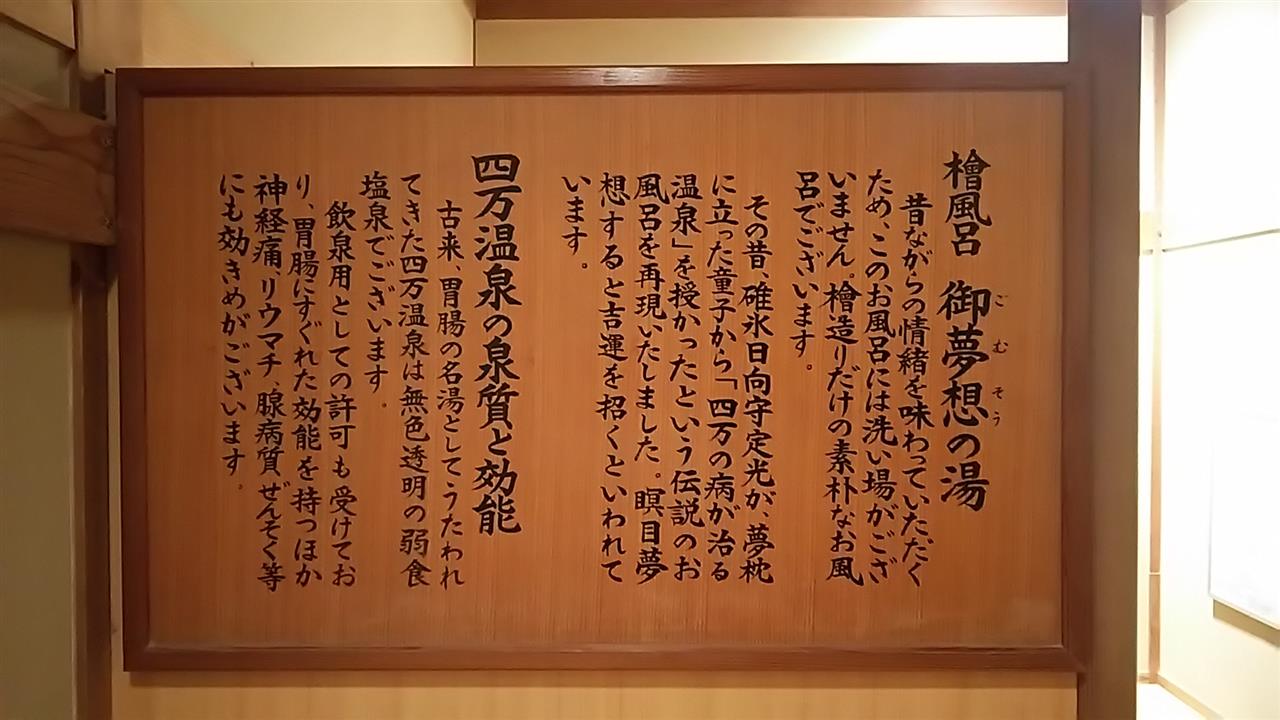 檜風呂 御夢想の湯
ごむそう
昔ながらの情緒を味わっていただく
ため、このお風呂には洗い場がござ
いません。檜造りだけの素朴なお風
呂でございます。
その昔、碓氷日向守定光が、夢枕
に立った童子から「四万の病が治る
温泉」を授かったという伝説のお
風呂を再現いたしました。瞑目夢
想すると吉運を招くといわれて
います。
四万温泉の泉質と効能
古来、胃腸の名湯としてうたわれ
てきた四万温泉は無色透明の弱食
塩泉でございます。
飲泉用としての許可も受けてお
り、胃腸にすぐれた効能を持つほか
神経痛、リウマチ、腺病質、ぜんそく等
にも効きめがございます。